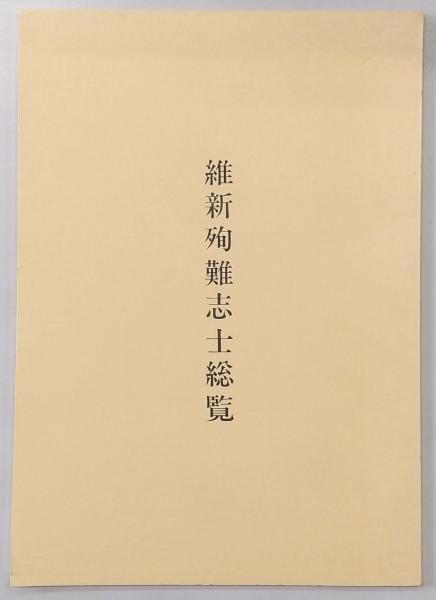 維新殉難志士総覧